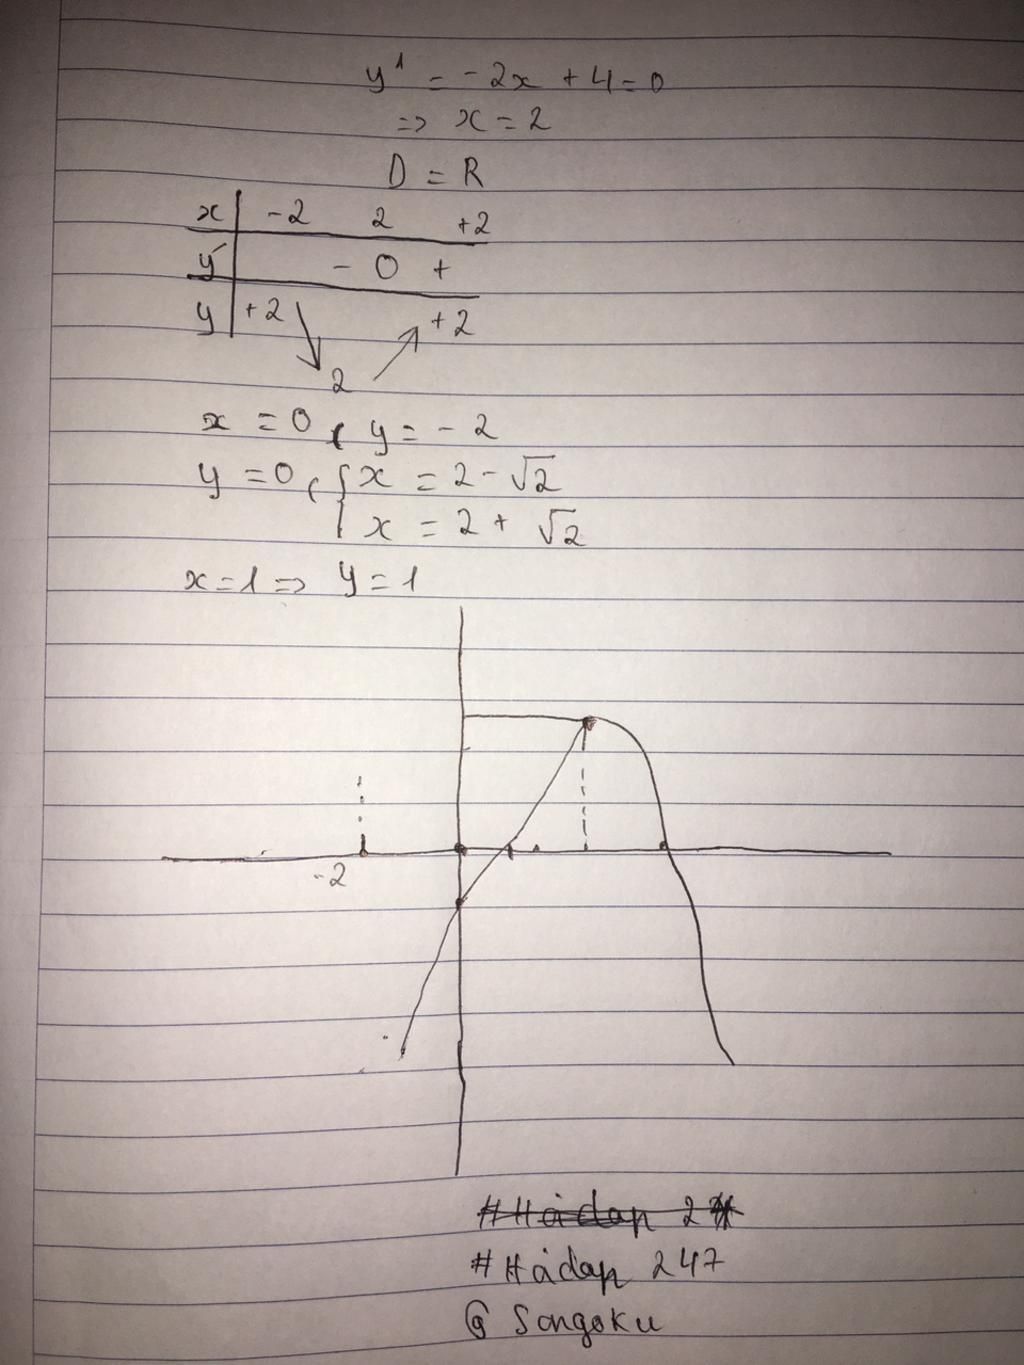 y' = -2x + 4 = 0
=> x = 2
D = R
x | -2 2 +2
y' | - 0 +
y | +2 ↘ 2 ↗ +2
x = 0, y = -2
y = 0, { x = 2 - √2
x = 2 + √2
x = 1 => y = 1
-2
#Hỏidap 247
@ Songoku